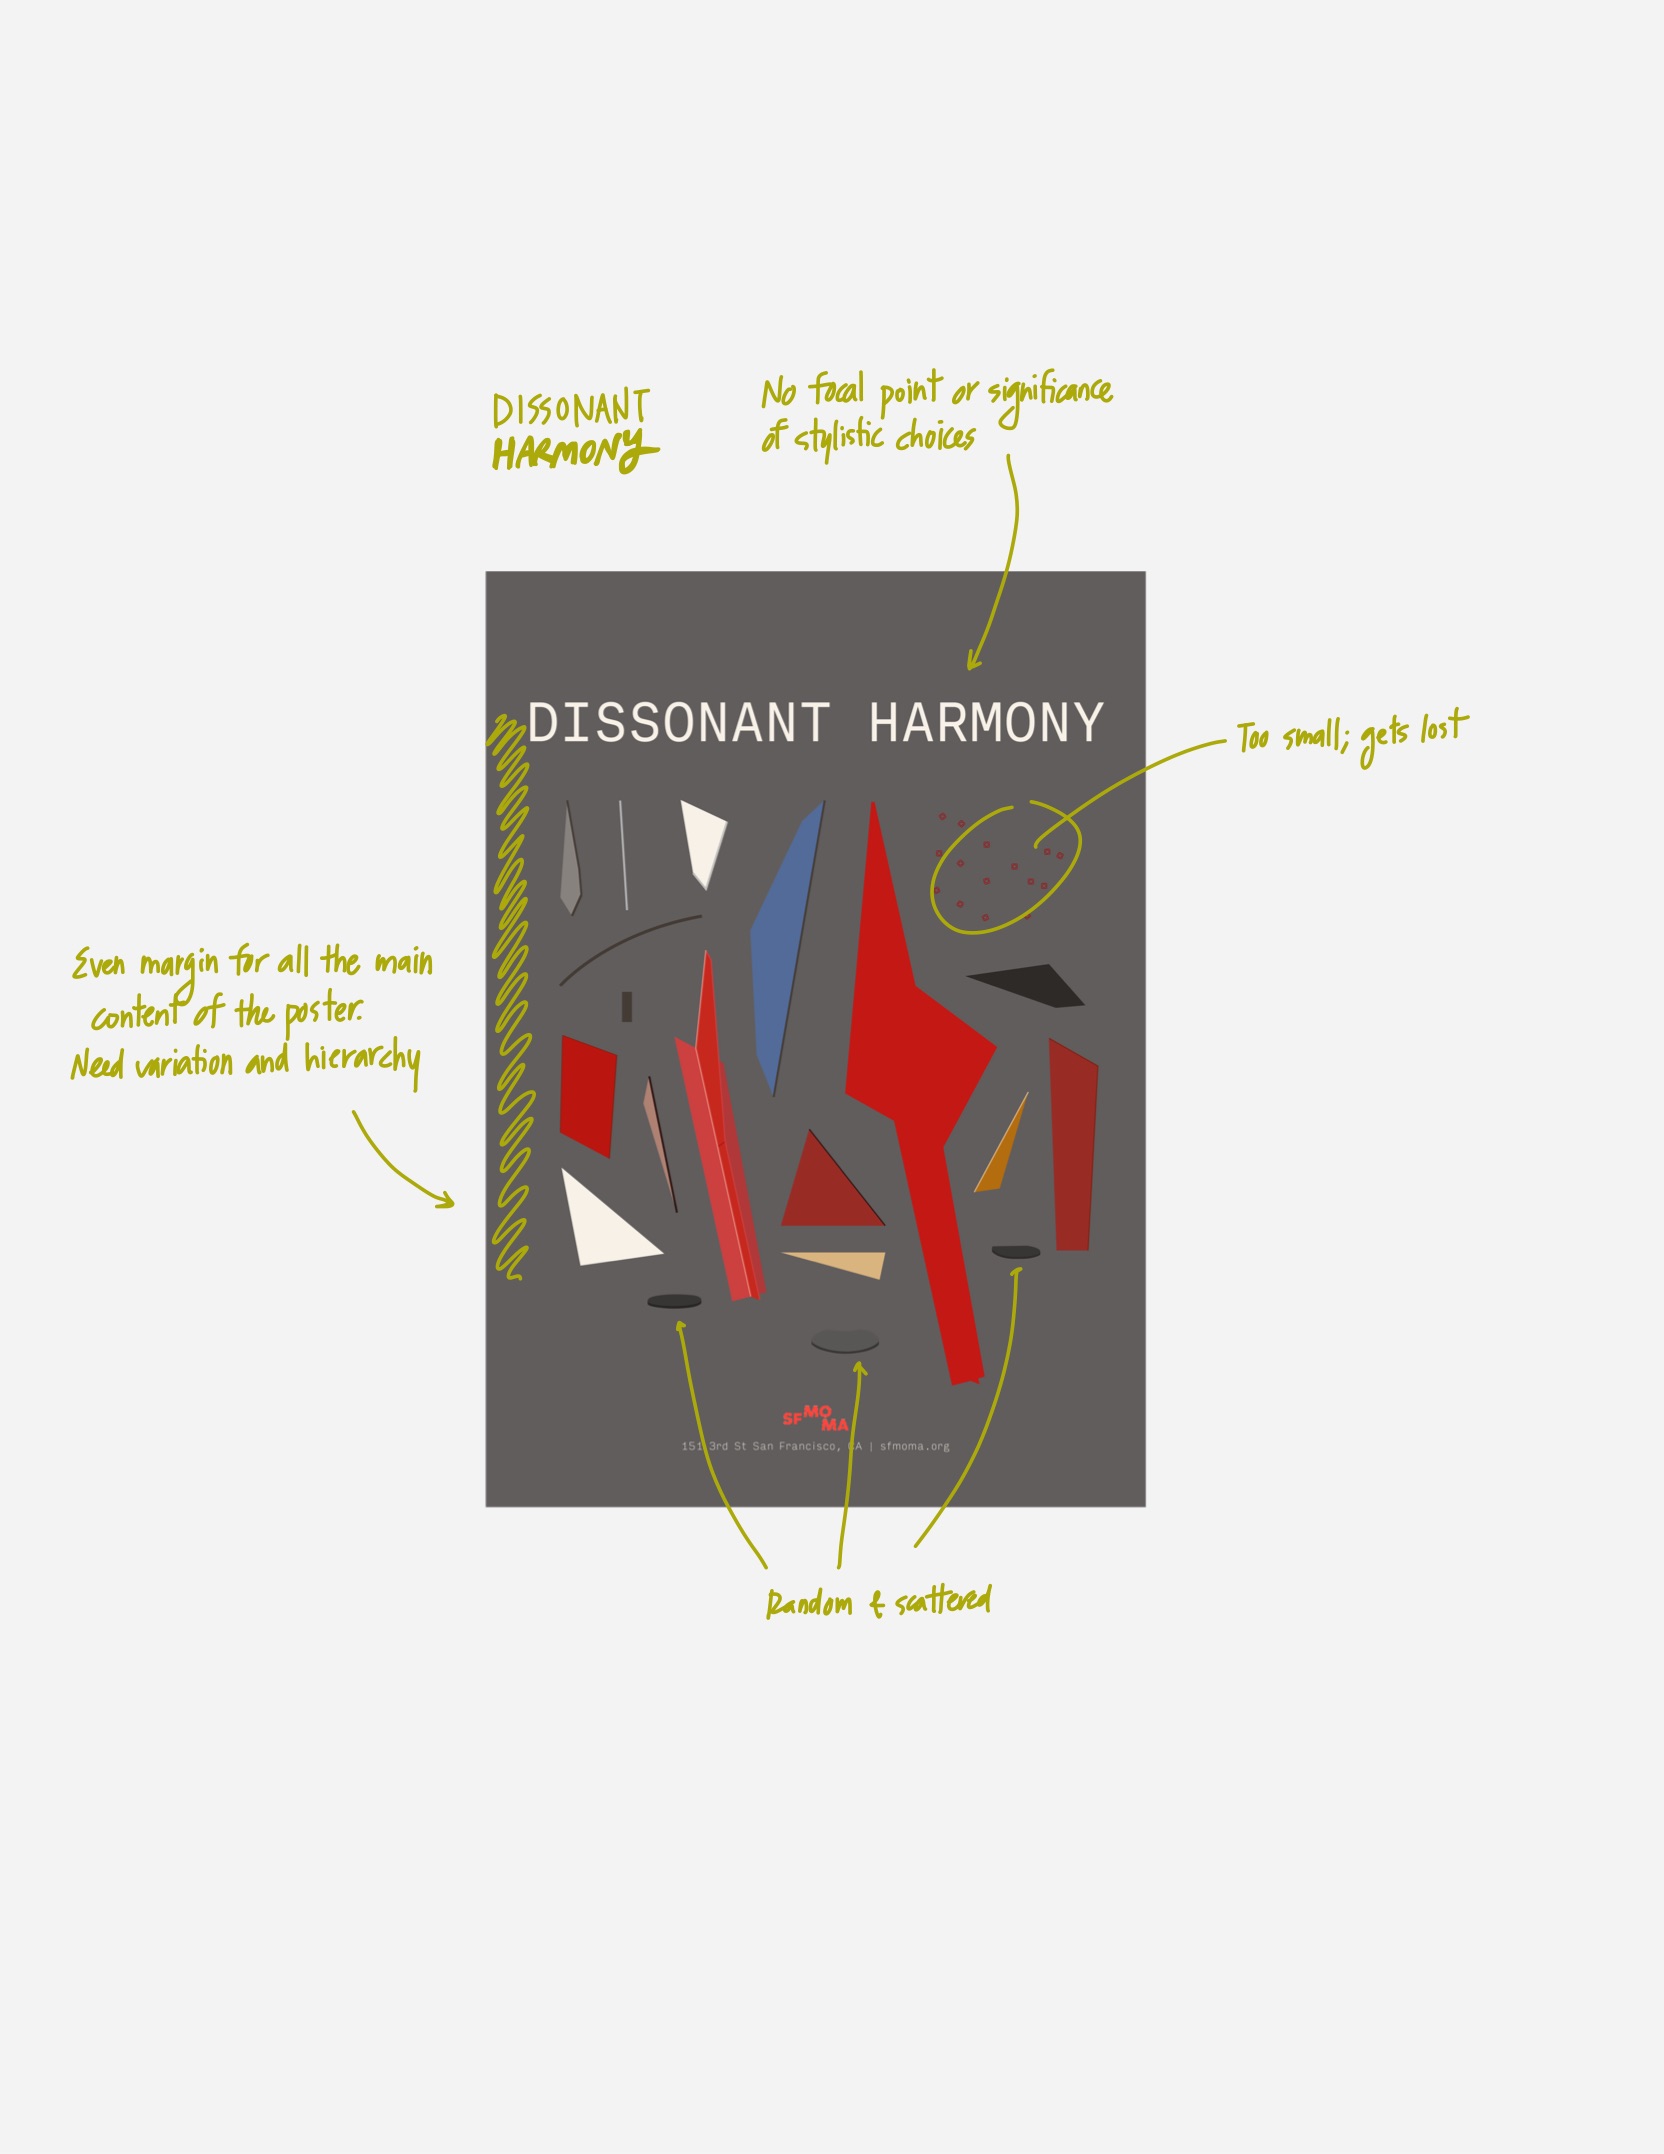 DISSONANT
HARMONY
No focal point or significance
of stylistic choices
DISSONANT HARMONY
Too small; gets lost
Even margin for all the main
content of the poster.
Need variation and hierarchy
SFMOMA
151 3rd St San Francisco, CA | sfmoma.org
Random & scattered